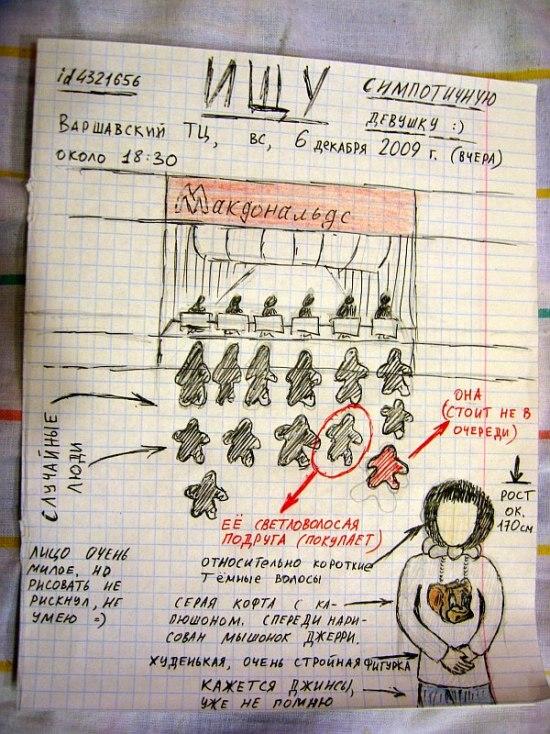 id4321656
ИЩУ
СИМПОТИЧНУЮ
ДЕВУШКУ :)
ВАРШАВСКИЙ ТЦ, ВС, 6 декабря 2009 г. (ВЧЕРА)
ОКОЛО 18:30
Макдональдс
СЛУЧАЙНЫЕ
ЛЮДИ
ОНА
(СТОИТ НЕ В
ОЧЕРЕДИ)
ЕЁ СВЕТЛОВОЛОСАЯ
ПОДРУГА (ПОКУПАЕТ)
РОСТ
ОК.
170см
ЛИЦО ОЧЕНЬ
МИЛОЕ, НО
РИСОВАТЬ НЕ
РИСКНУЛ, НЕ
УМЕЮ =)
ОТНОСИТЕЛЬНО КОРОТКИЕ
ТЁМНЫЕ ВОЛОСЫ
СЕРАЯ КОФТА С КА-
ПЮШОНОМ. СПЕРЕДИ НАРИ-
СОВАН МЫШОНОК ДЖЕРРИ.
ХУДЕНЬКАЯ, ОЧЕНЬ СТРОЙНАЯ ФИГУРКА
КАЖЕТСЯ ДЖИНСЫ,
УЖЕ НЕ ПОМНЮ